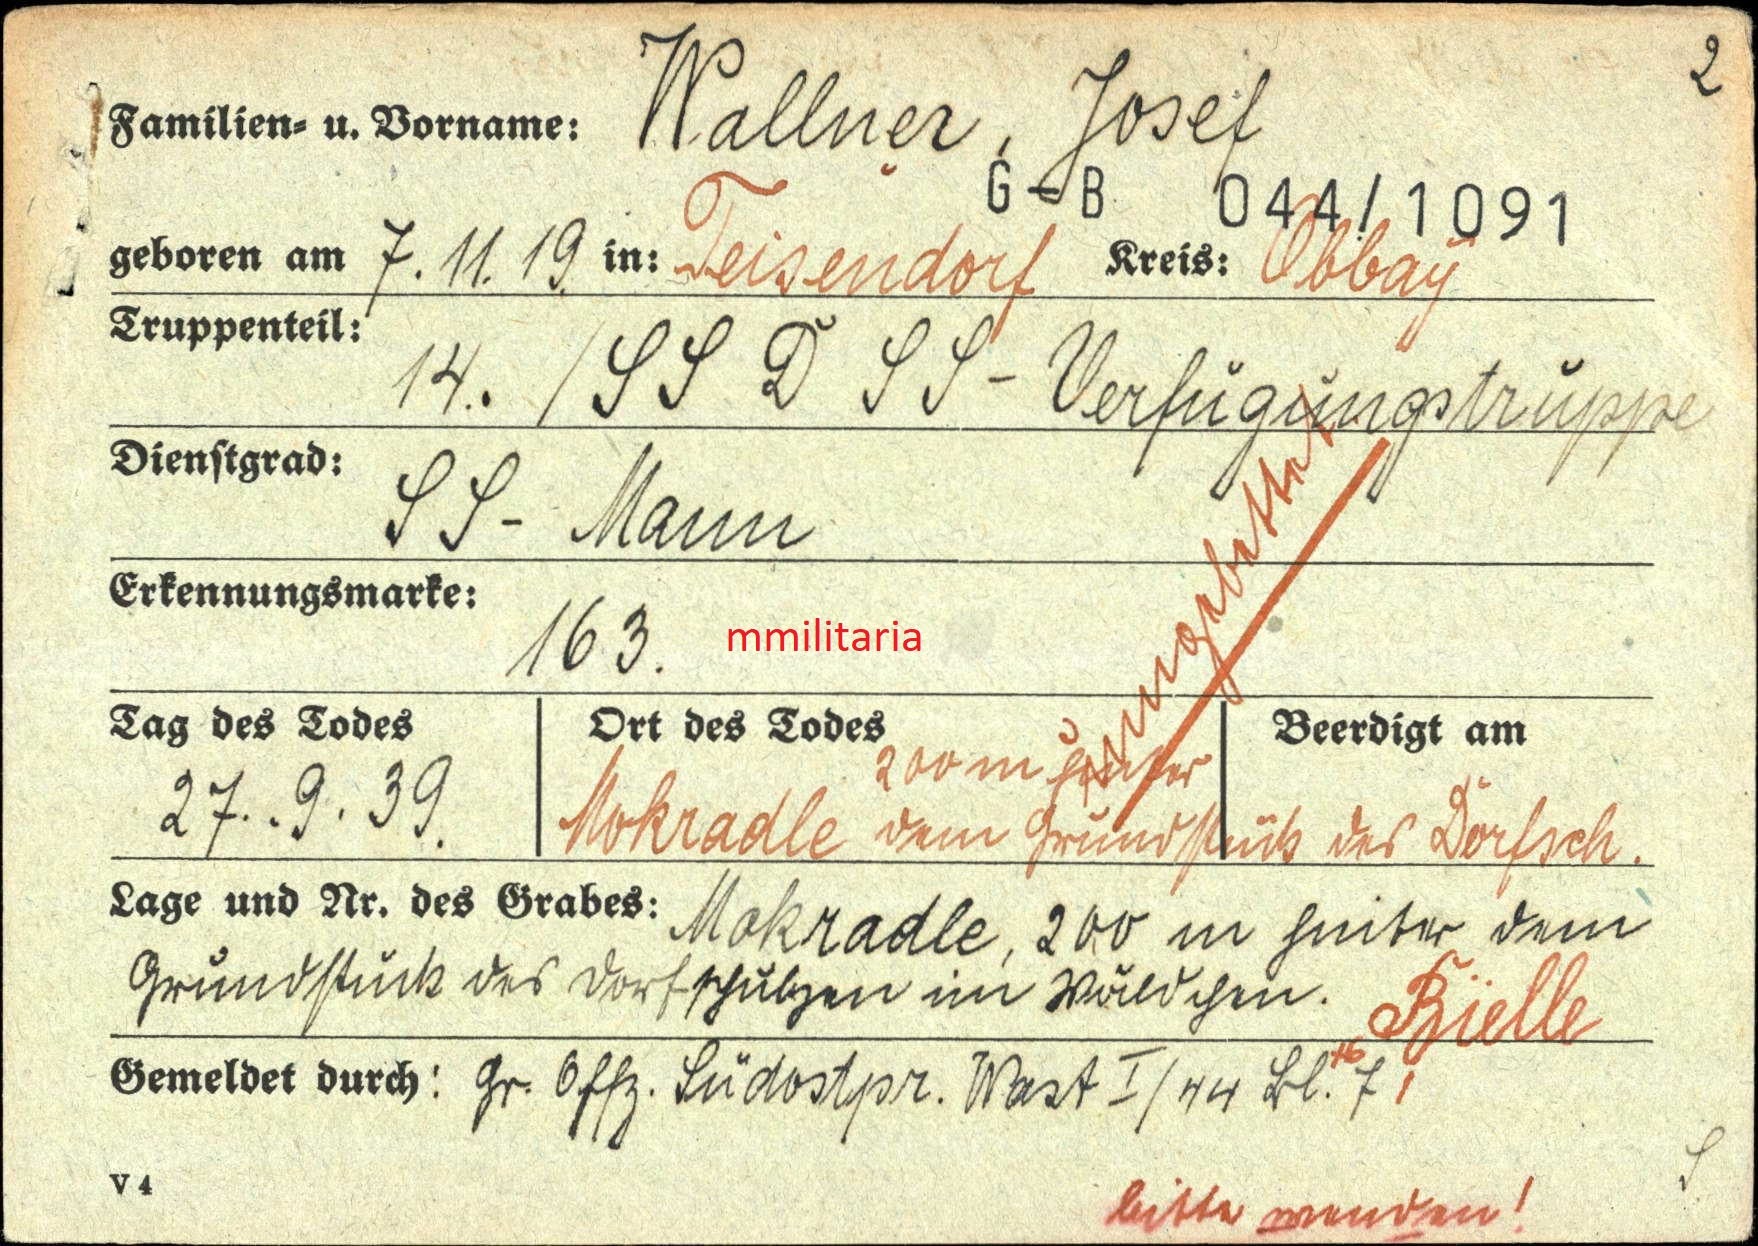 2
Familien- u. Vorname: Wallner, Josef
G-B 044/1091
geboren am 7.11.19. in: Teisendorf Kreis: Obbay
Truppenteil: 14. / SS D SS-Verfügungstruppe
Dienstgrad: SS-Mann
Erkennungsmarke: 163.
mmilitaria
umgebettet
Tag des Todes Ort des Todes Beerdigt am
200 m hinter
27.9.39. Mokradle dem Grundstück des Dorfsch.
Lage und Nr. des Grabes: Mokradle, 200 m hinter dem
Grundstück des Dorfschulzen im Wäldchen.
Gemeldet durch: Gr. Offz. Südostpr. Wast I/44 Bl. 7
V 4
bitte wenden!